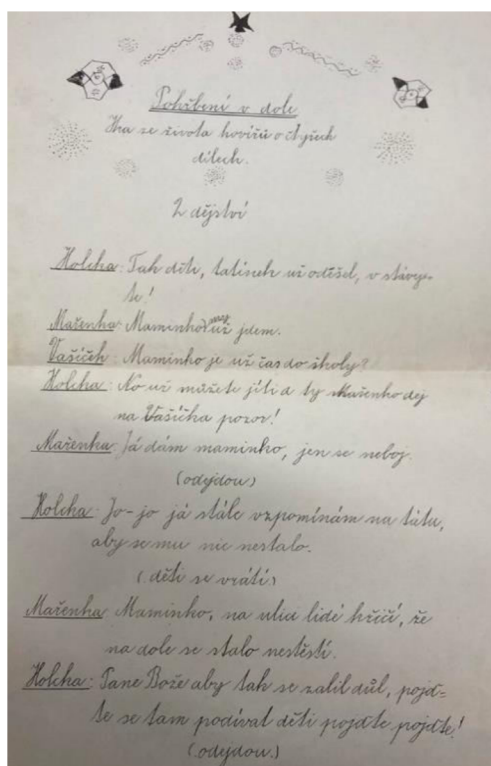 Pohřbeni v dole
Hra se života hovířů o čtyřech
dílech.
2 dějství
Holcha: Tak děti, tatínek už odešel, v stávej-
te!
Mařenka: Maminko my už jdem.
Vašíček: Maminko je už čas do školy?
Holcha: No už můžete jíti a ty Mařenko dej
na Vašíčka pozor!
Mařenka: Já dám maminko, jen se neboj.
(odejdou)
Holcha: Jo-jo já stále vzpomínám na tátu,
aby se mu nic nestalo.
(děti se vrátí)
Mařenka: Maminko, na ulici lidé křičí, že
na dole se stalo neštěstí.
Holcha: Pane Bože aby tak se zalil důl, pojď-
te se tam podívat děti pojďte pojďte!
(odejdou.)